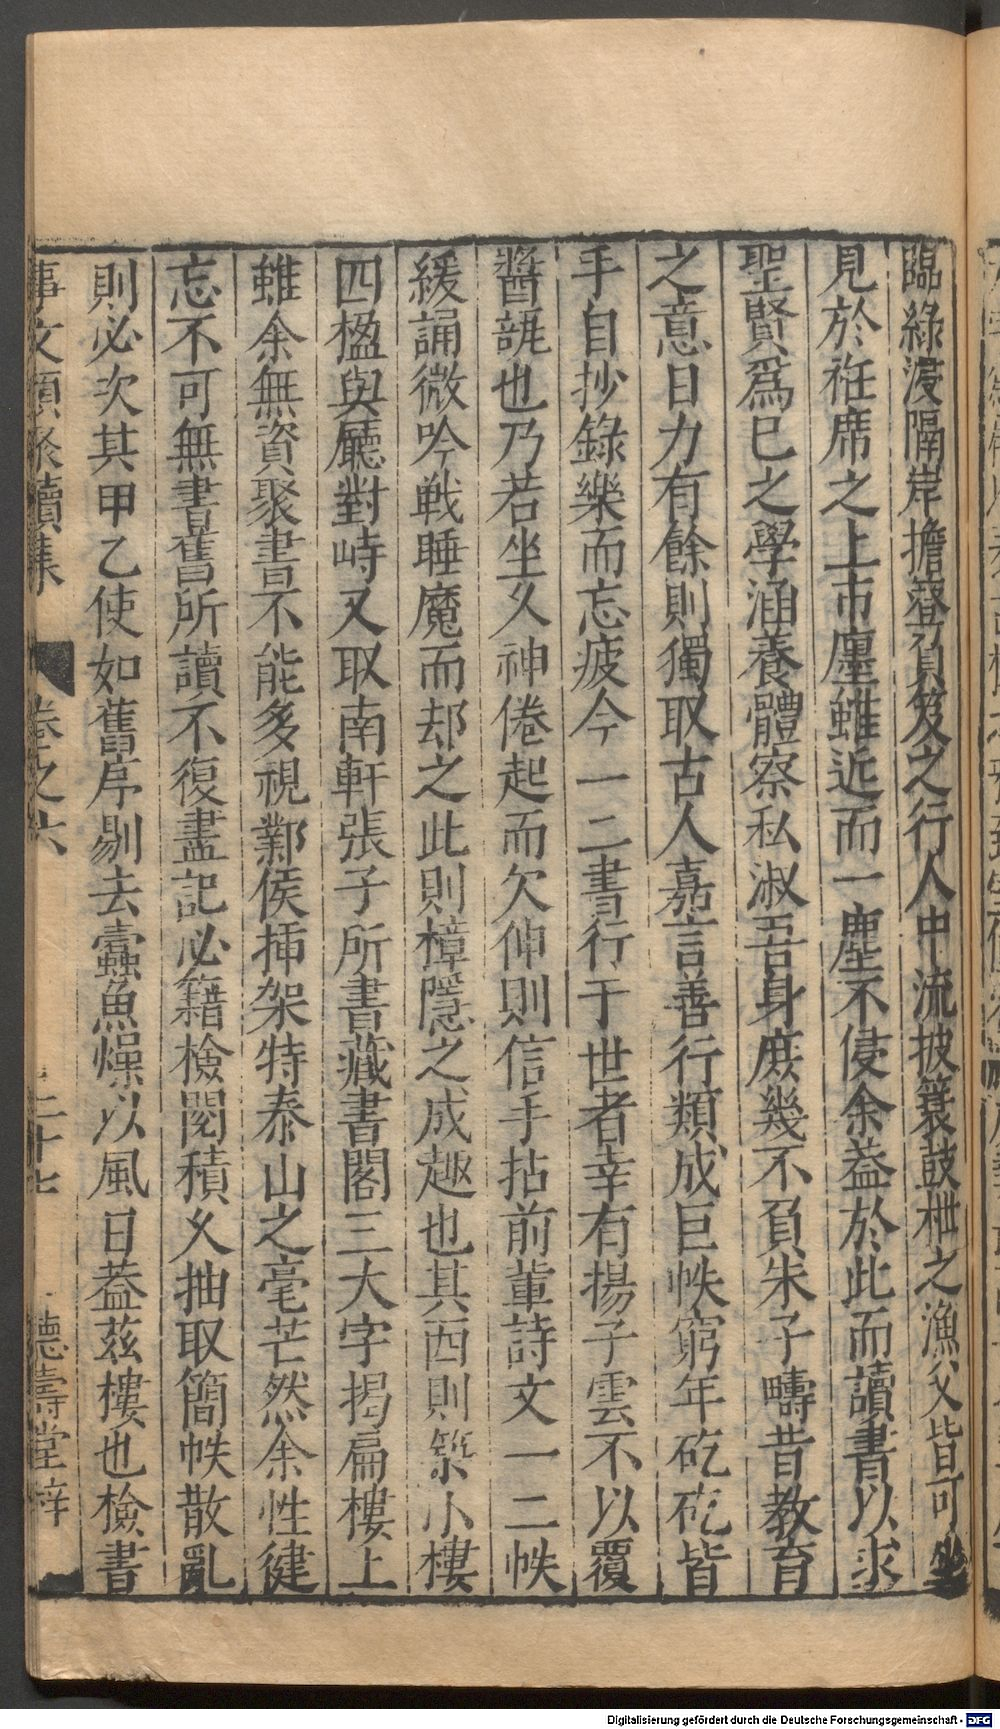 臨綠浸隔岸擔簦負笈之行人中流披簑鼓枻之漁父皆可坐
見於衽席之上市廛雖近而一塵不侵余益於此而讀書以求
聖賢爲已之學涵養體察私淑吾身庶幾不負朱子疇昔教育
之意日力有餘則獨取古人嘉言善行類成巨帙窮年矻矻皆
手自抄錄樂而忘疲今一二書行于世者幸有揚子雲不以覆
醬瓿也乃若坐久神倦起而欠伸則信手拈前軰詩文一二帙
緩誦微吟戰睡魔而却之此則樟隱之成趣也其西則築小樓
四楹與廳對峙又取南軒張子所書藏書閣三大字揭扁樓上
雖余無資聚書不能多視鄴侯揷架特泰山之毫芒然余性健
忘不可無書舊所讀不復盡記必籍檢閱積久抽取簡帙散亂
則必次其甲乙使如舊序剔去蠹魚燥以風日葢茲樓也檢書
事文類聚續集 卷之六 二十七 德壽堂梓
Digitalisierung gefördert durch die Deutsche Forschungsgemeinschaft - DFG